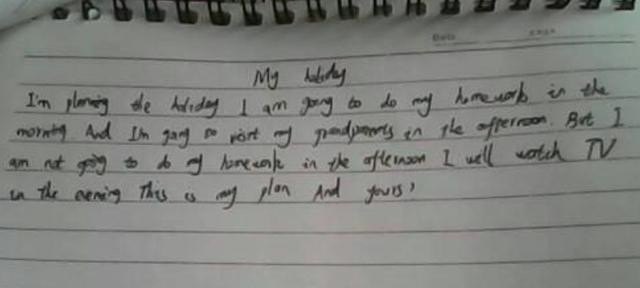 Date
My holiday
I'm planing the holiday I am going to do my homework in the
morning And I'm going to visit my grandparents in the afternoon. But I
am not going to do my homework in the afternoon I will watch TV
in the evening This is my plan And yours?